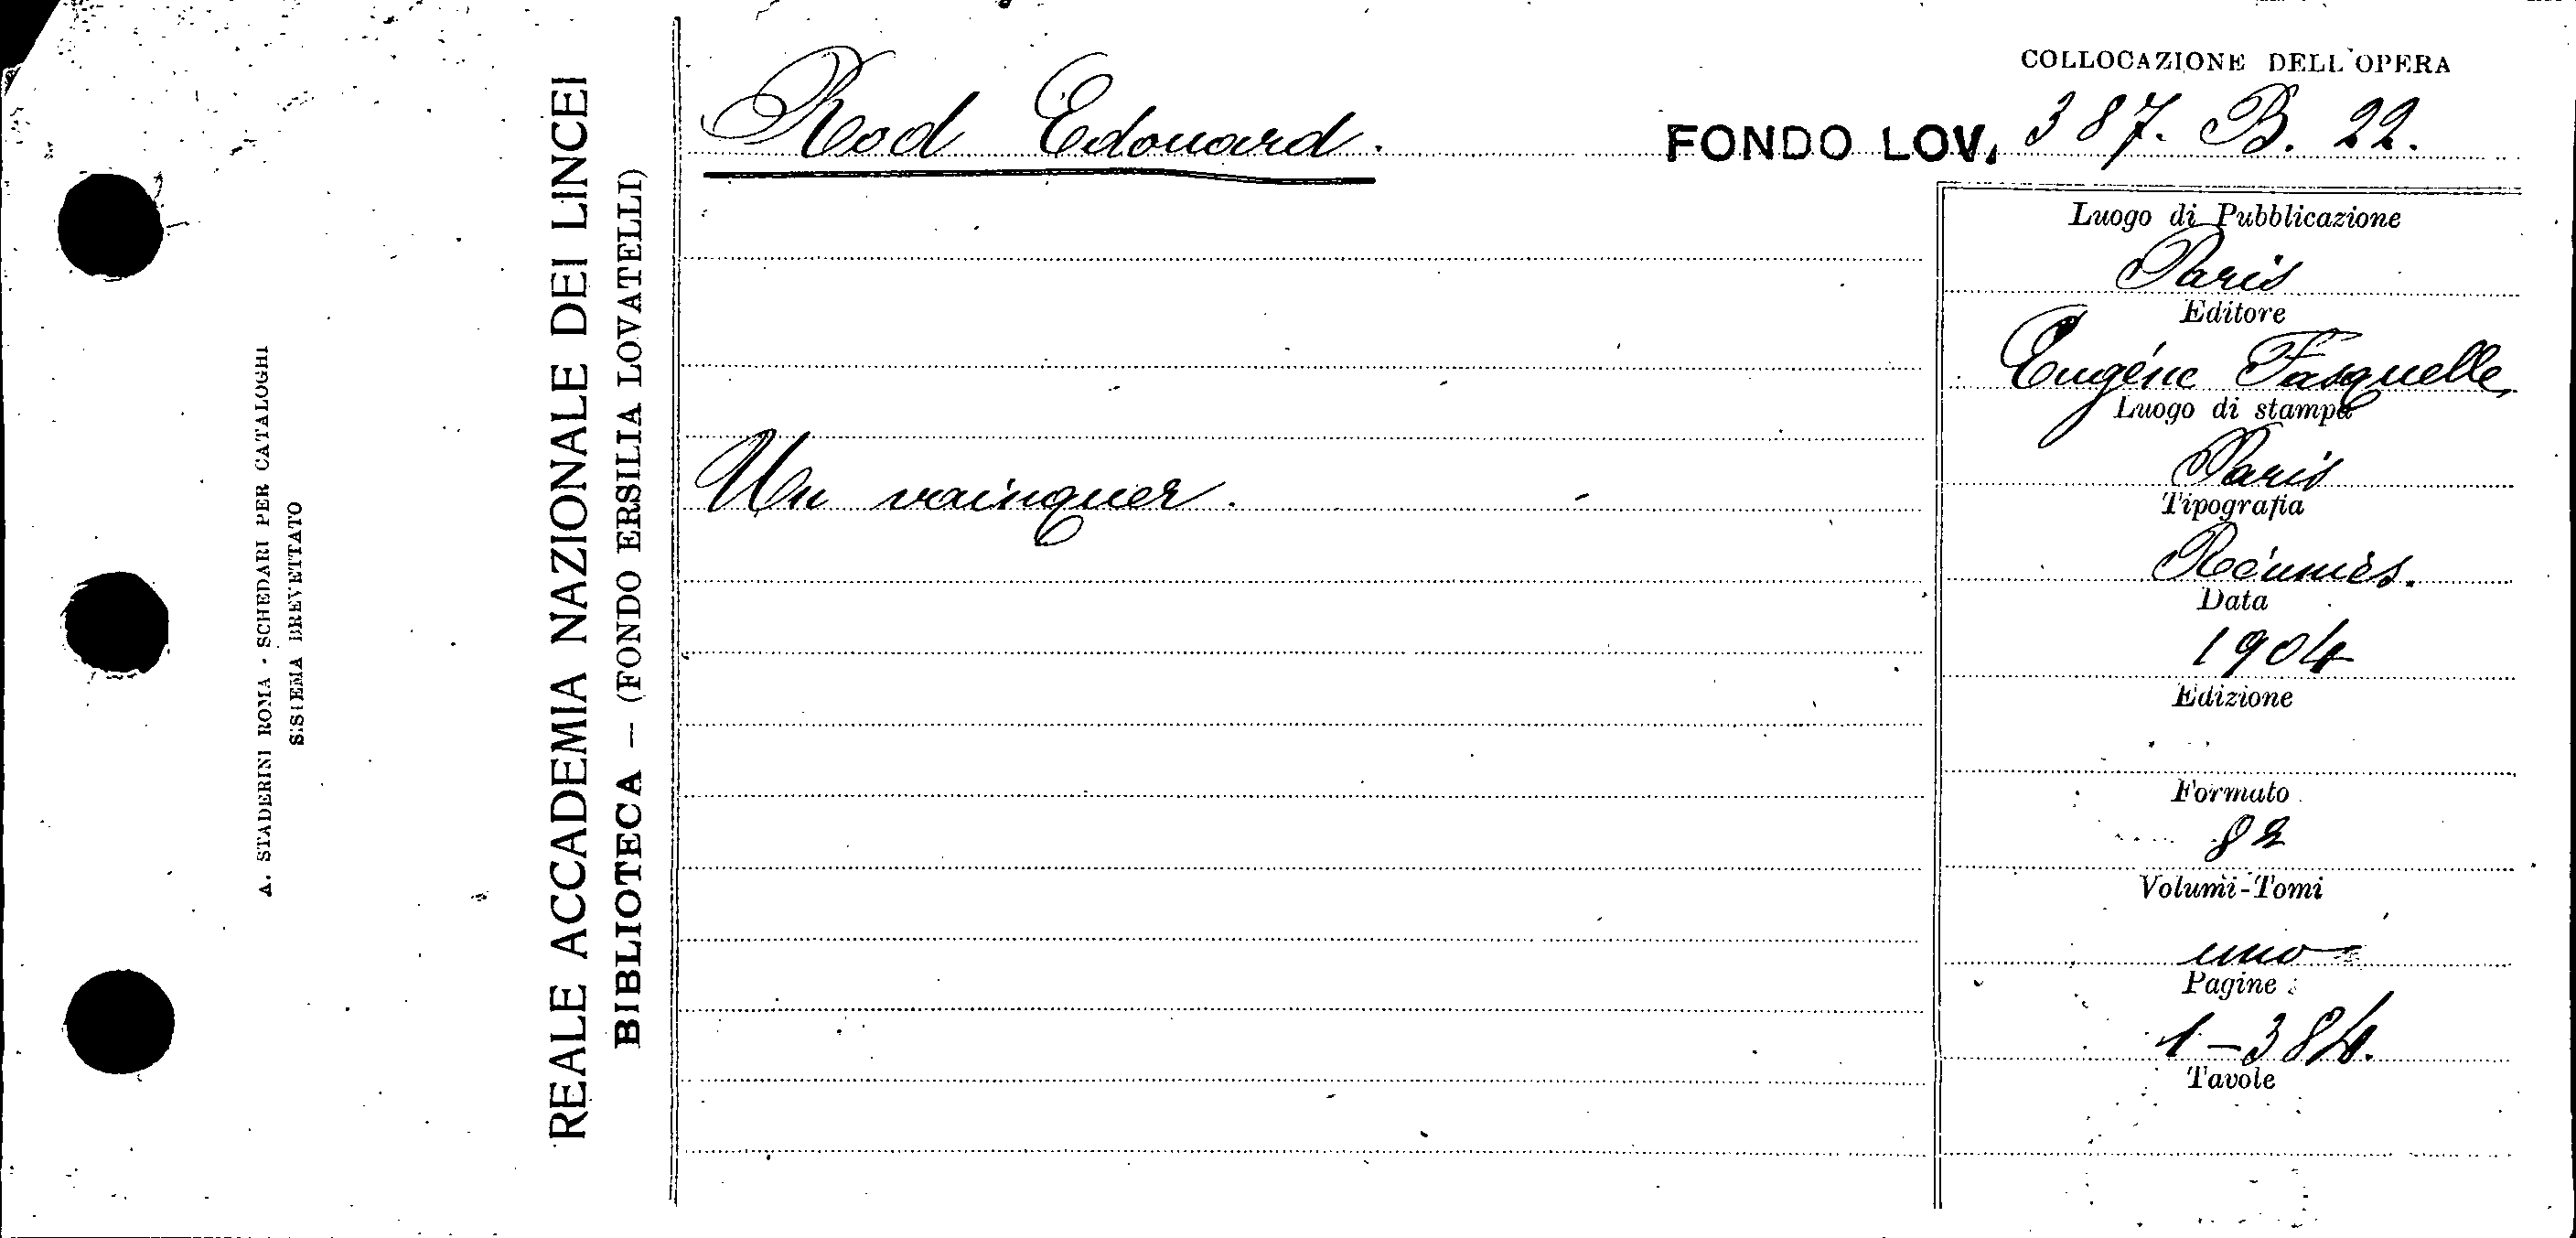 A. STADERINI ROMA - SCHEDARI PER CATALOGHI
SISTEMA BREVETTATO
REALE ACCADEMIA NAZIONALE DEI LINCEI
BIBLIOTECA — (FONDO ERSILIA LOVATELLI)
COLLOCAZIONE DELL'OPERA
Rod Edouard. FONDO LOV. 387. B. 22.
Un vainquer.
Luogo di Pubblicazione
Paris
Editore
Eugéne Fasquelle
Luogo di stampa
Paris
Tipografia
Réunies.
Data
1904
Edizione
Formato
8º
Volumi-Tomi
uno
Pagine
1-384.
Tavole